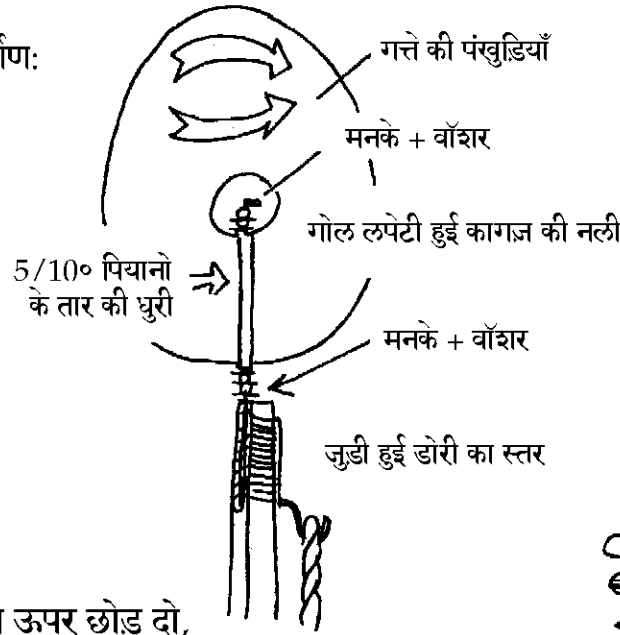 गत्ते की पंखुड़ियाँ
मनके + वॉशर
गोल लपेटी हुई कागज़ की नली
5/10° पियानो
के तार की धुरी
मनके + वॉशर
जुड़ी हुई डोरी का स्तर
ऊपर छोड़ दो,